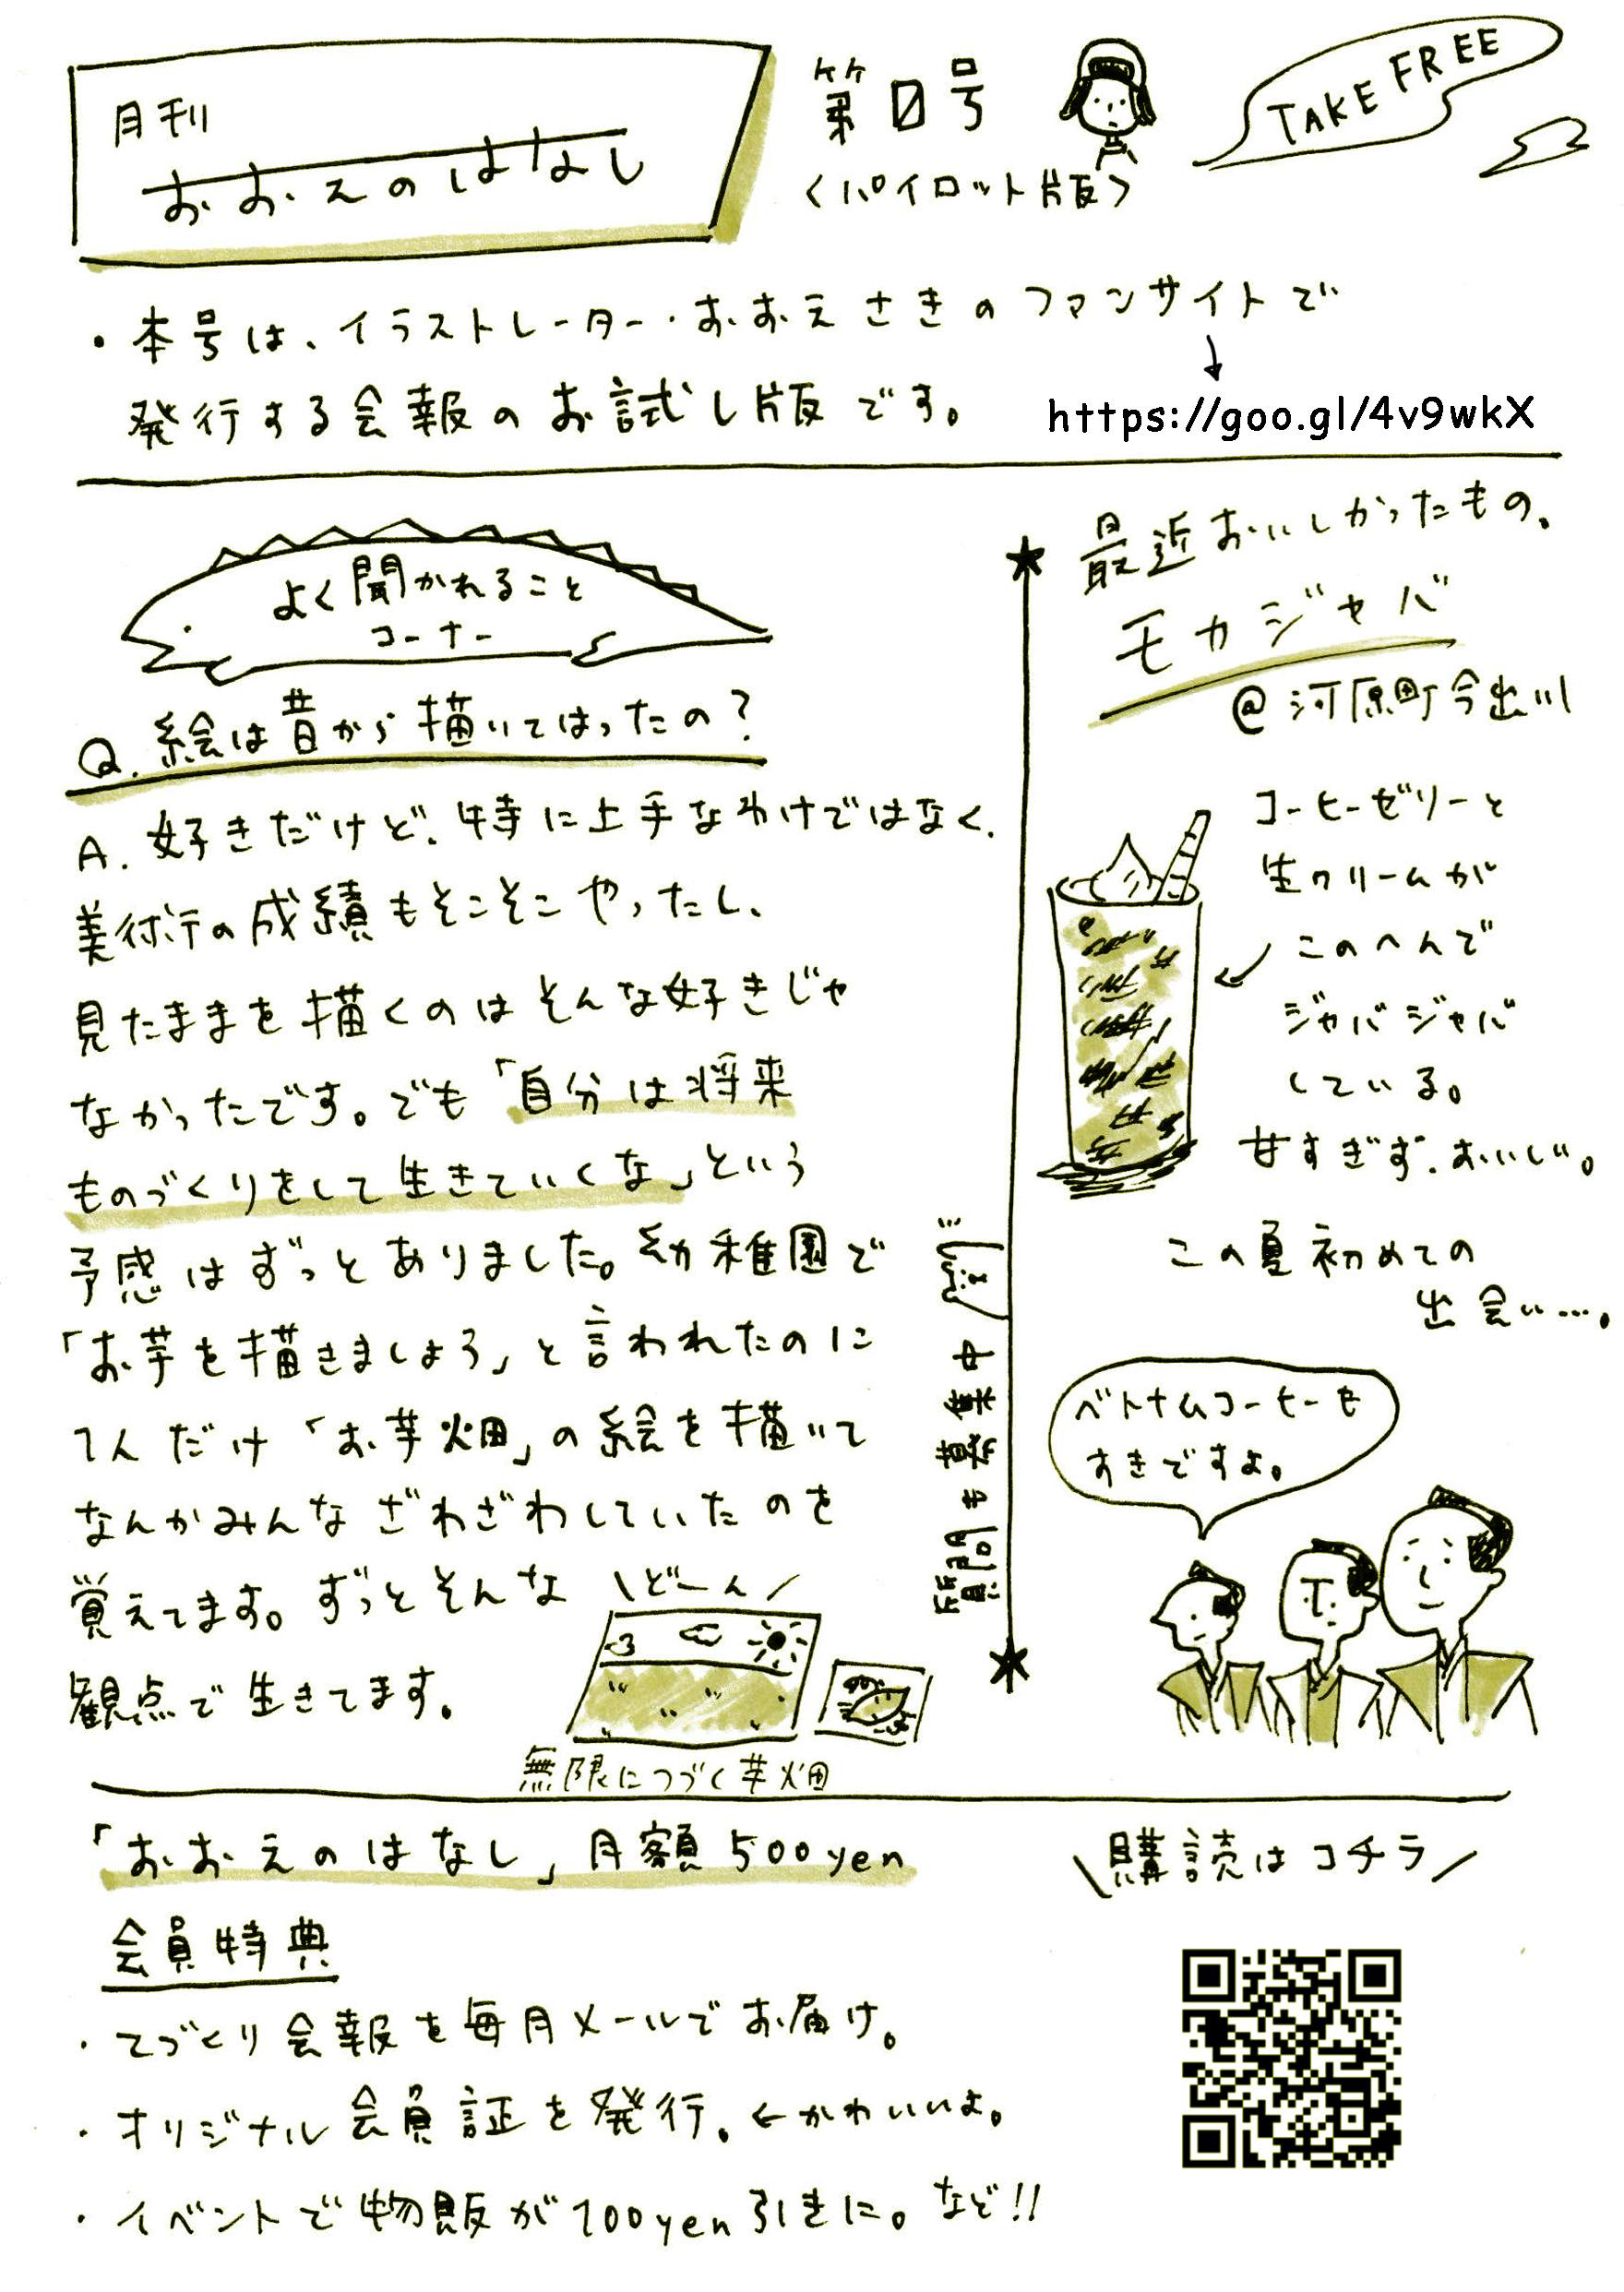 月刊
おおえのはなし
第0号
〈パイロット版〉
TAKE FREE
・本号は、イラストレーター・おおえさきのファンサイトで
発行する会報のお試し版です。
https://goo.gl/4v9wkX
よく聞かれること
コーナー
Q. 絵は昔から描いてはったの?
A. 好きだけど、特に上手なわけではなく、
美術の成績もそこそこやったし、
見たままを描くのはそんな好きじゃ
なかったです。でも「自分は将来
ものづくりをして生きていくな」という
予感はずっとありました。幼稚園で
「お芋を描きましょう」と言われたのに
1人だけ「お芋畑」の絵を描いて
なんかみんなざわざわしていたのを
覚えてます。ずっとそんな
観点で生きてます。
\どーん/
無限につづく芋畑
質問も募集中
最近おいしかったもの。
モカジャバ
@河原町今出川
コーヒーゼリーと
生クリームが
このへんで
ジャバジャバ
している。
甘すぎず、おいしい。
この夏初めての
出会い…。
ベトナムコーヒーも
すきですよ。
「おおえのはなし」月額500yen
会員特典
・てづくり会報を毎月メールでお届け。
・オリジナル会員証を発行。←かわいいよ。
・イベントで物販が100yen引きに。など!!
\購読はコチラ/